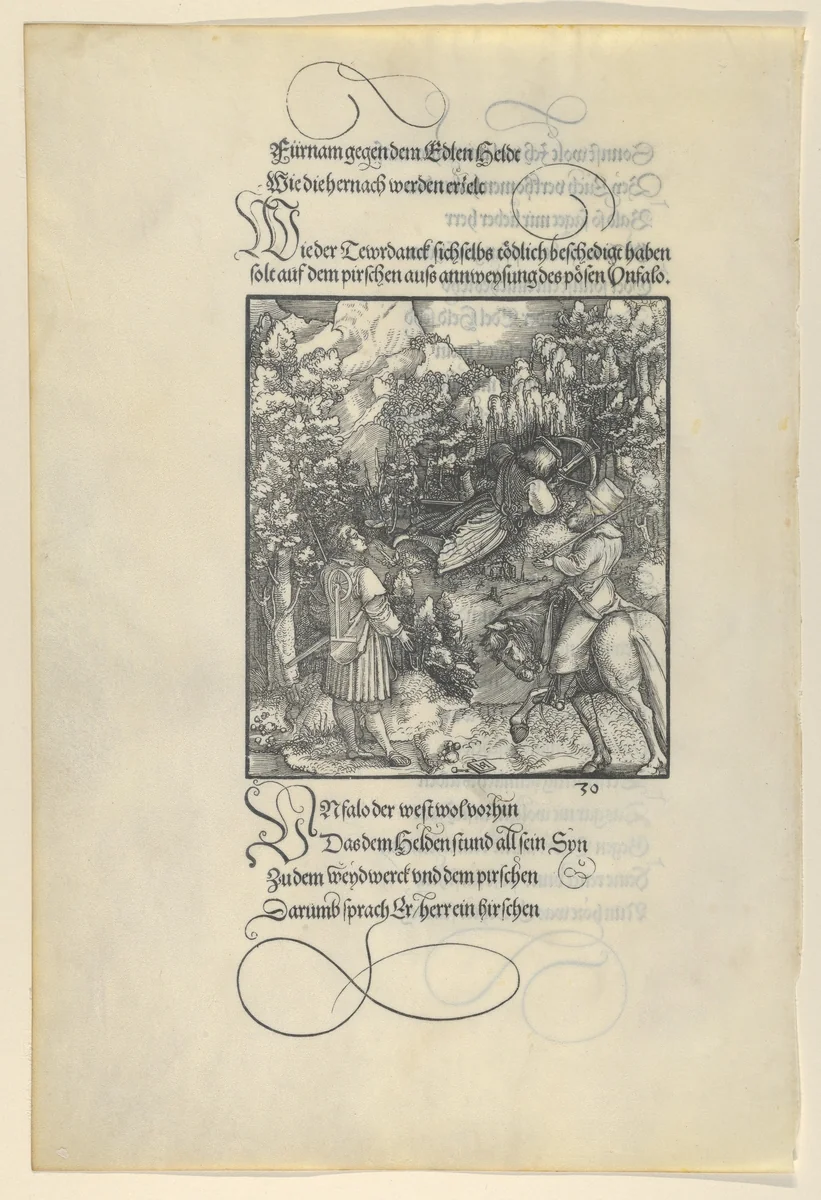 Fürnam gegen dem Edlen Heldt
Wie die hernach werden erzelt
Wie der Tewrdanck sich selbs tödlich beschedigt haben
solt auf dem pirschen auss annweysung des pösen Vnfalo.
30
VNfalo der west wol vorhin
Das dem Helden stund all sein Syn
Zu dem weydwerck vnd dem pirschen
Darumb sprach Er / herr ein hirschen